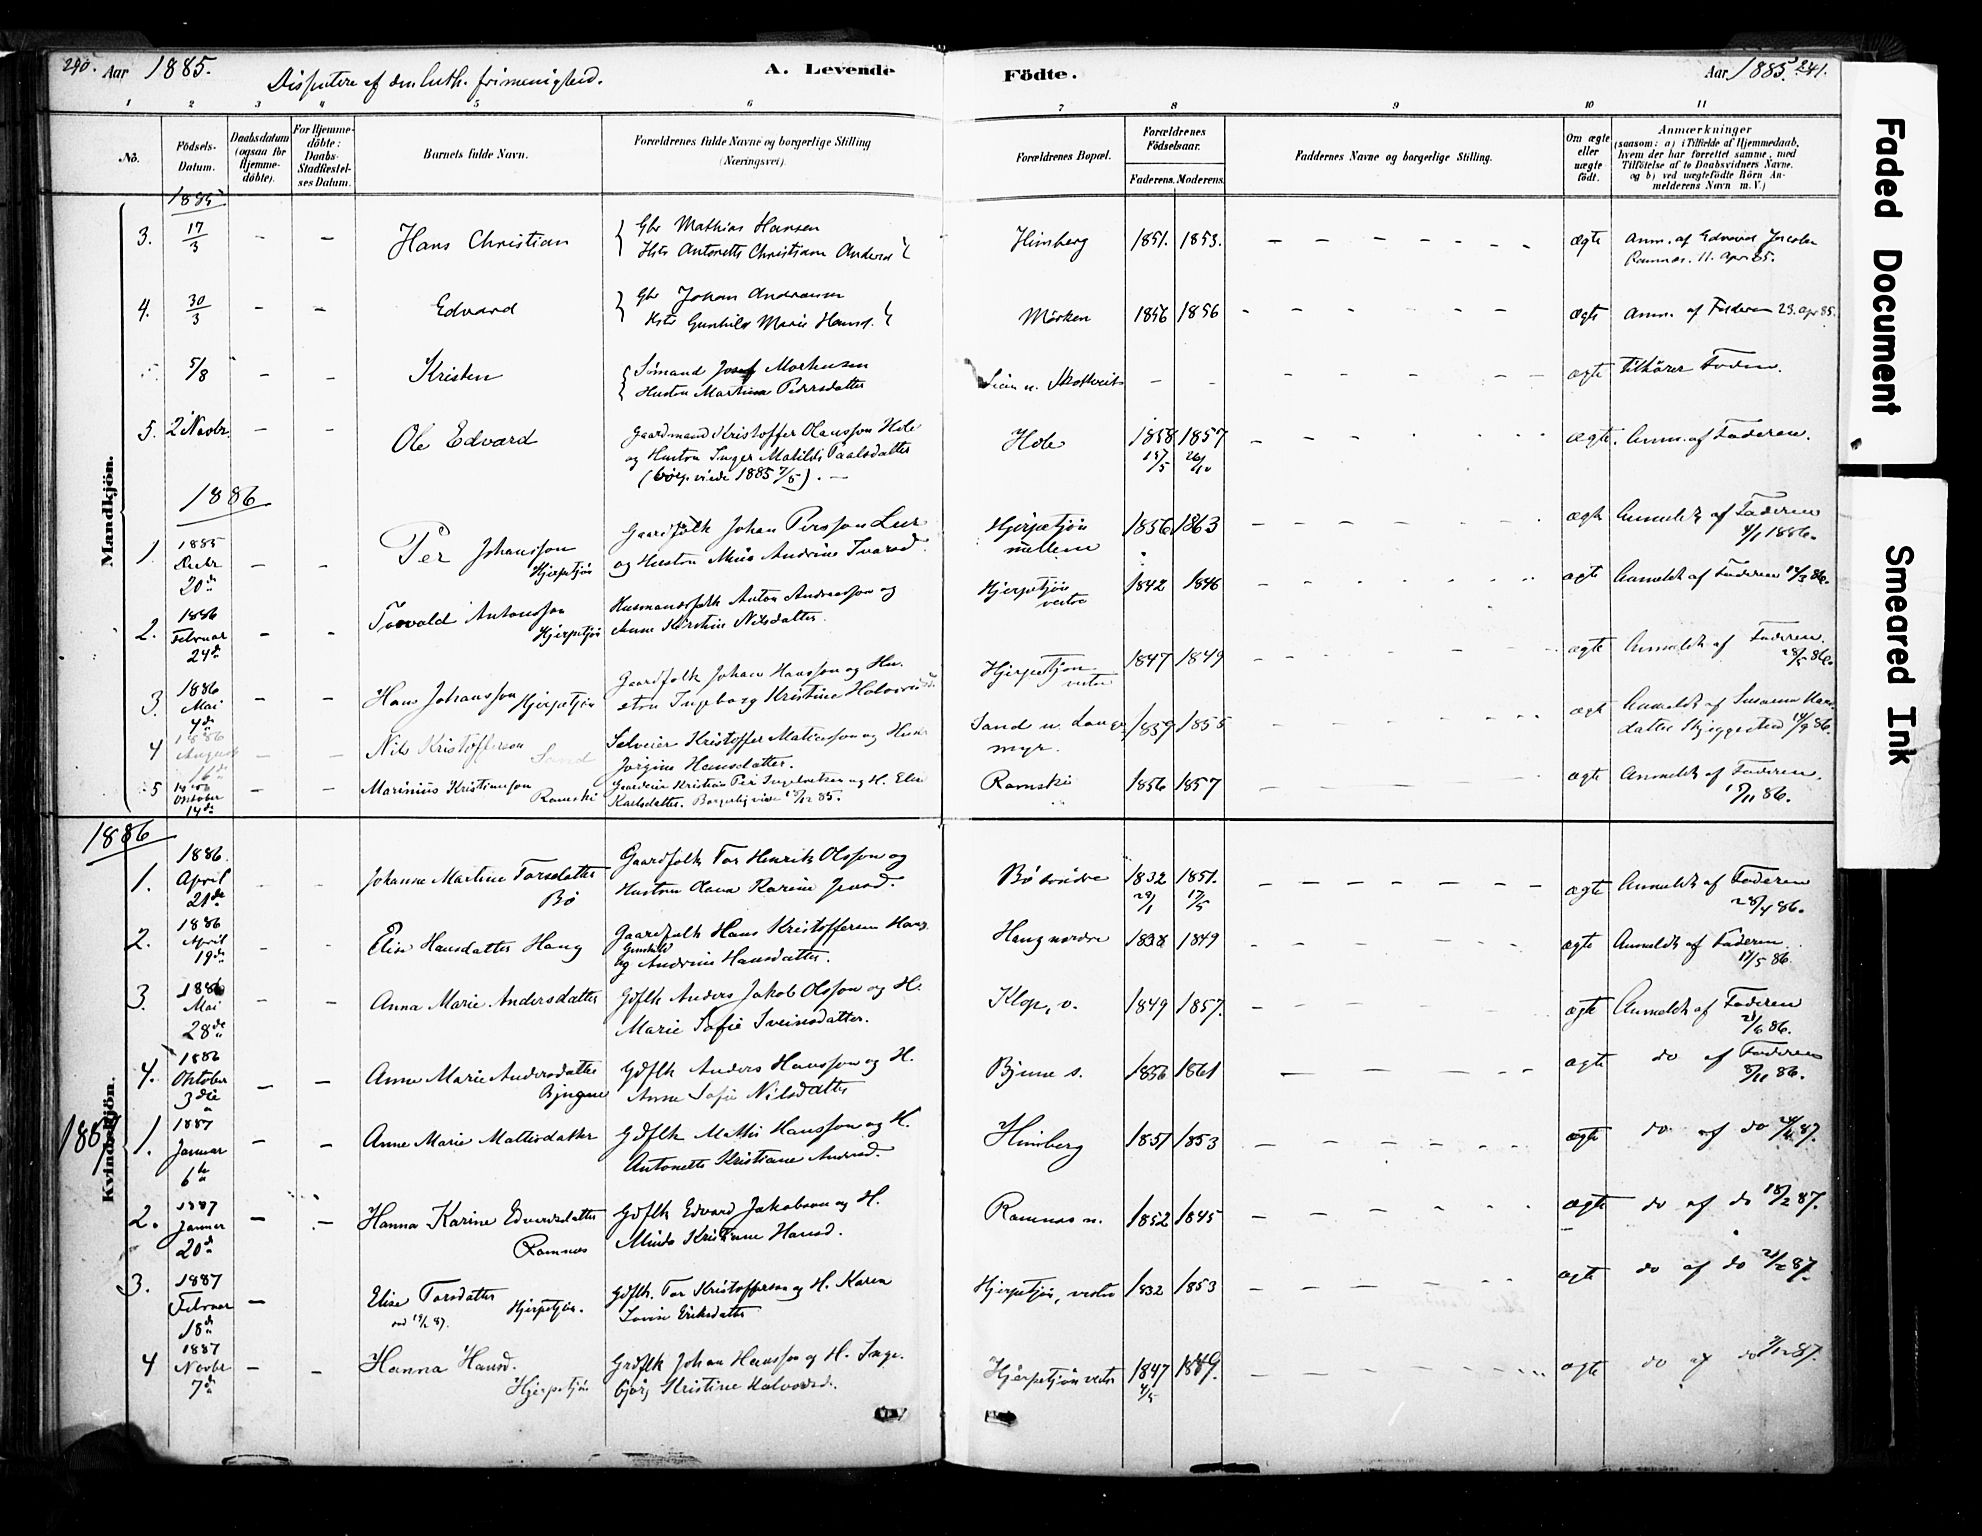 240. Aar 1885.
Disputere af den luth. frimenighed.
A. Levende
Födte.
Aar 1885. 241.
1 2 3 4 5 6 7 8 9 10 11
No.
Födsels-Datum.
Daabsdatum (ogsaa for Hjemme-döbte).
For Hjemme-döbte: Daabs-Stadfæstel-ses Datum.
Barnets fulde Navn.
Forældrenes fulde Navne og borgerlige Stilling (Næringsvei).
Forældrenes Bopæl.
Forældrenes Födselsaar.
Faderens. Moderens.
Faddernes Navne og borgerlige Stilling.
Om ægte eller uægte födt.
Anmærkninger
(saasom: a) i Tilfælde af Hjemmedaab, hvem der har forrettet samme, med Tilföielse af to Daabsvidners Navne, og b) ved uægtefödte Börn An-melderens Navn m. V.)
Mandkjön.
1885
3. 17/3 - - Hans Christian { Gbr Mathias Hansen Himberg 1851. 1853. - - - - - - - ægte Anm. af Edvard Jacobs
Hstr Antonette Christiane Andersd } Ramnæs. 11. Apr 85.
4. 30/3 - - Edvard { Gbr Johan Andreasen Mörken 1856 1856 - - - - - - ægte Anm. af Faderen 23. apr 85.
Hstr Gunhild Marie Hansd. }
5/8 - - Kristen { Sömand Josef Morhusen - - - - - - - ægte tilhörer Foden.
Hustru Martinea Pedersdatter
5. 2 Novbr. - - Ole Edvard Gaardmand Kristoffer Olausson Hole Hole 1858 1857 - - - - - - ægte. Anm. af Faderen.
og Hustru Inger Matilde Paalsdatter
(borg. viede 1885 7/5). -
1886
1. 1885 Decbr 20de - - Per Johansson Hjerpetjön Gaardfolk Johan Persson Lur Hjerpetjön mellem 1856 1863 - - - - - - ægte Anmeldt af Faderen 4/1 1886.
og Hustru Mina Andrine Ivarsd.
2. 1886 Februar 24de - - Torvald Antonsson Hjerpetjön Husmandsfolk Anton Andreasson og Hjerpetjön vestre 1842 1846 - - - - - - ægte Anmeldt af Faderen 14/3 86.
Anne Kirstine Nilsdatter.
3. 1886 Mai 4de - - Hans Johansson Hjerpetjön Gaardfolk Johan Hansson og Hu- Hjerpetjön vestre 1847 1849 - - - - - - ægte Anmeldt af Faderen 28/5 86.
stru Ingeborg Kristine Halvorsd
4 1886 August 16de - - Nils Kristofferson Sand Selveier Kristoffer Matiasson og Hustr Sand n. Lange-myr. 1859 1855 - - - - - - ægte Anmeldt af Susanna Hans-
Jörgine Hansdatter. datter Skjeggestad 14/9 86.
5 1886 Oktober 14de - - Marinius Kristiansson Ramski Gaardeier Kristian Per Ingebretsen og H. Elen Ramski 1856 1857 - - - - - - ægte Anmeldt af Faderen.
Karlsdatter. Borgerlig viede 17/12 85. 17/11 86.
1886
Kvindekjön.
1. 1886. April 21de - - Johanne Martine Torsdatter Bö Gaardfolk Tor Henrik Olsson og Bö söndre 1832 29/1 1851. 17/5 - - - - - - - - ægte Anmeldt af Faderen
Hustru Olava Karine Jensd. 28/4 86.
2. 1886 April 19de - - Elise Hansdatter Haug Gaardfolk Hans Kristoffersen Haug Haug nordre 1838 1849 - - - - - - ægte Anmeldt af Faderen.
og Gunhild Andrine Hansdatter. 17/5 86.
3. 1886 Mai 28de - - Anna Marie Andersdatter Gdflk Anders Jakob Olsson og H. Klop, v. 1849 1857. - - - - - - ægte Anmeldt af Faderen
Marie Sofie Sveinsdatter. 21/6 86.
4. 1886 Oktober 3die - - Anne Marie Andersdatter Bjugne Gdflk Anders Hansson og H. Bjune s. 1856 1861 - - - - - ægte do af Faderen
Anne Sofie Nilsdatter 8/11 86.
1887
1. 1887 Januar 6te - - Anne Marie Mattisdatter Gdflk Mattis Hansson og H. Himberg 1851 1853 - - - - - - - ægte do af do 24/1 87.
Antonette Kristiane Andersd.
2. 1887 Januar 20de - - Hanna Karine Edvardsdatter Ramnæs Gdflk Edvard Jakobson og H. Ramnæs n. 1852 1845 - - - - - - ægte do af do 18/2 87.
Minda Kristiane Hansd.
3. 1887 Februar 18de - Elise Torsdatter Hjerpetjön. Gdflk. Tor Kristofferson og H. Karen Hjerpetjön, vestre 1832 1853 - - - - - - ægte do af do 21/2 87.
Lovise Eriksdatter
4 1887 Novbr 7de - - Hanna Hansd. Hjerpetjön Grdflk Johan Hansson og H. Inge- Hjerpetjön vestre 1847 4/5 1849. - - - - - - ægte do af do 7/12 87.
björg Kristine Halvorsd.
Faded Document
Smeared Ink